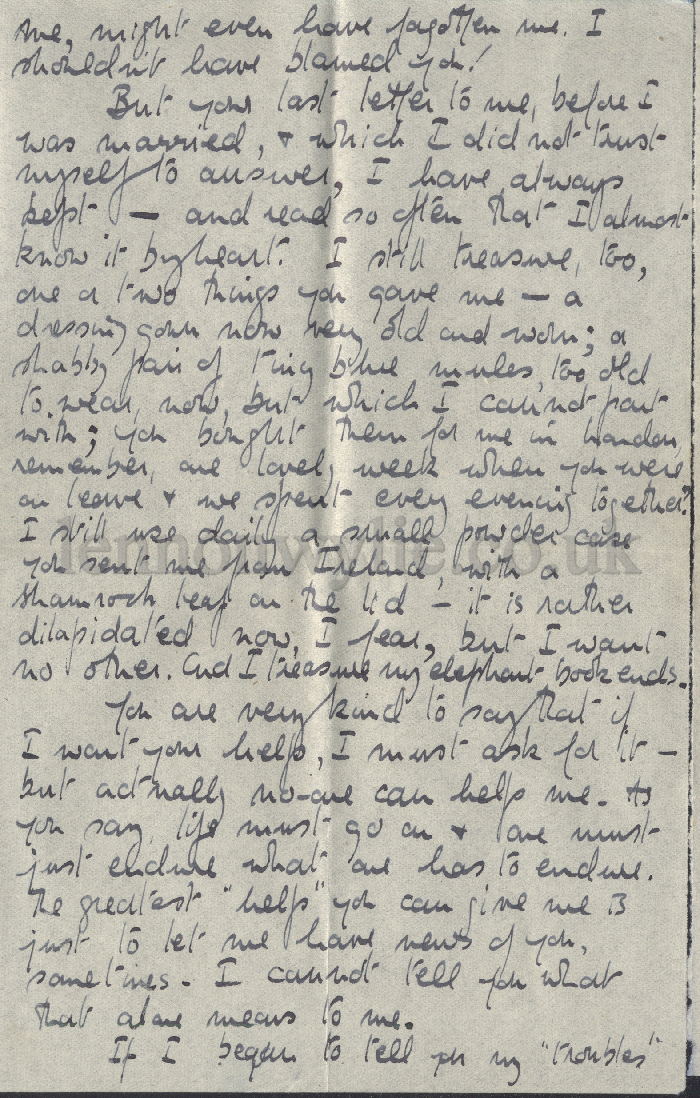 me, might even have forgotten me. I
shouldn't have blamed you!
But your last letter to me, before I
was married, & which I did not trust
myself to answer, I have always
kept — and read so often that I almost
know it by heart. I still treasure, too,
one or two things you gave me — a
dressing gown now very old and worn; a
shabby pair of tiny blue mules, too old
to wear, now, but which I cannot part
with; you bought them for me in London,
remember, one lovely week when you were
on leave & we spent every evening together?
I still use daily a small powder case
you sent me from Ireland, with a
shamrock leaf on the lid — it is rather
dilapidated now, I fear, but I want
no other. And I treasure my elephant book ends.
You are very kind to say that if
I want your help, I must ask for it —
but actually no-one can help me. As
you say, life must go on & one must
just endure what one has to endure.
The greatest "help" you can give me is
just to let me have news of you,
sometimes. I cannot tell you what
that alone means to me.
If I began to tell you my "troubles"
lennonwylie.co.uk